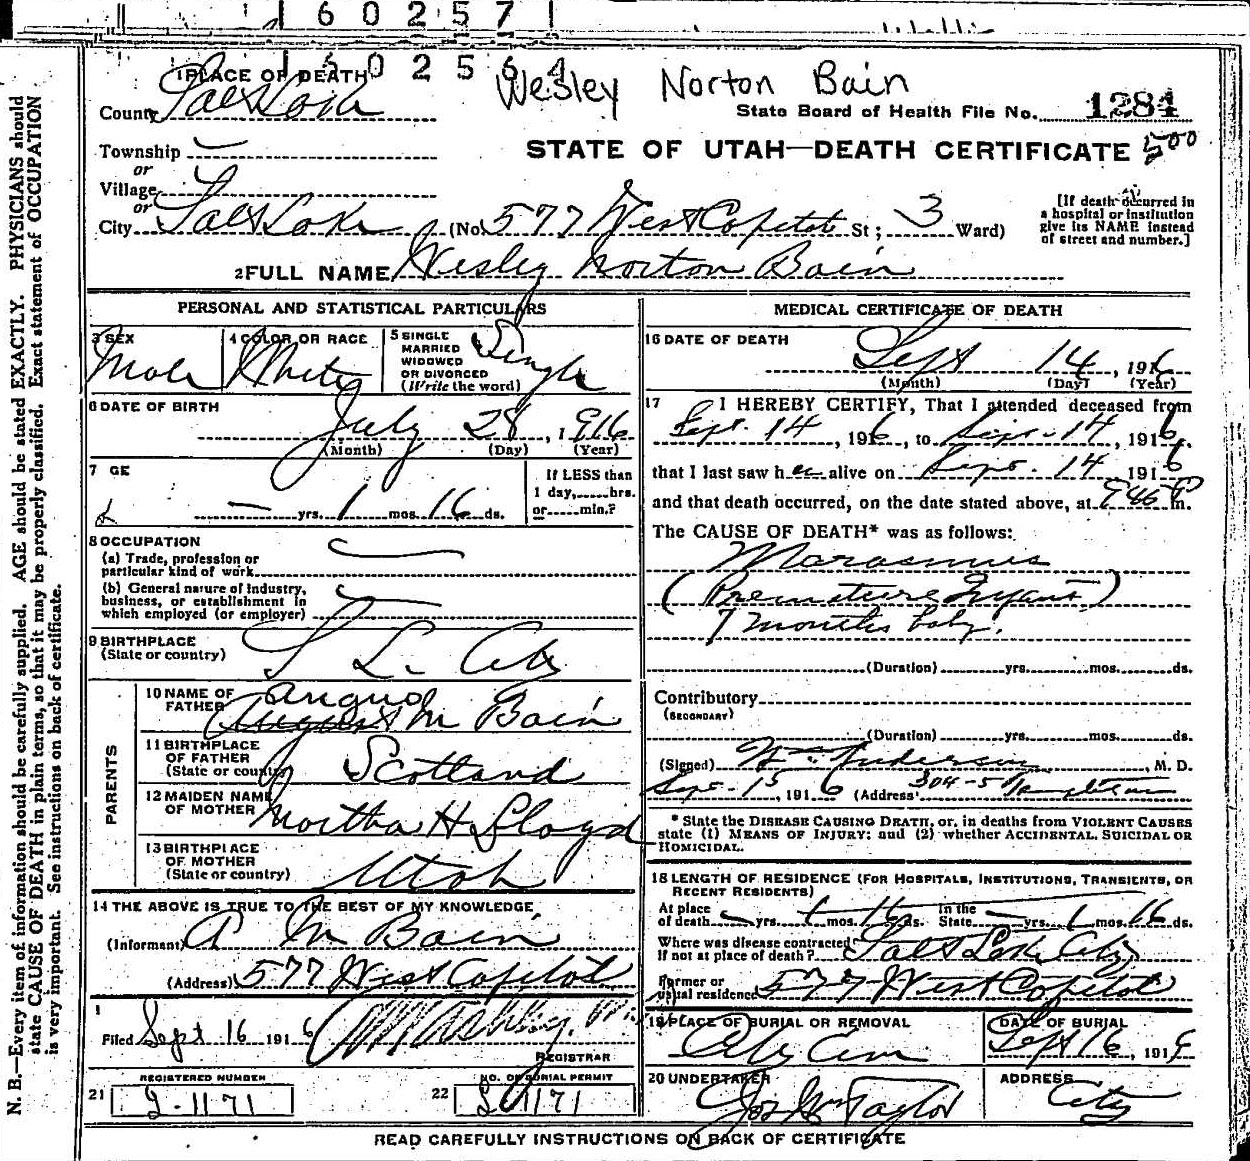 60257
602564
Wesley Norton Bain
1 PLACE OF DEATH
County Salt Lake
State Board of Health File No. 1284
Township
STATE OF UTAH—DEATH CERTIFICATE 500
or
Village
or
City Salt Lake (No. 577 West Capitol St; 3 Ward)
[If death occurred in a hospital or institution give its NAME instead of street and number.]
2 FULL NAME Wesley Norton Bain
PERSONAL AND STATISTICAL PARTICULARS
3 SEX
Male
4 COLOR OR RACE
White
5 SINGLE
MARRIED
WIDOWED
OR DIVORCED
(Write the word)
Single
6 DATE OF BIRTH
July 28, 1916
(Month) (Day) (Year)
7 GE
— yrs. 1 mos. 16 ds.
If LESS than
1 day,......hrs.
or......min.?
8 OCCUPATION
(a) Trade, profession or
particular kind of work
(b) General nature of industry,
business, or establishment in
which employed (or employer)
9 BIRTHPLACE
(State or country)
S L. City
PARENTS
10 NAME OF
FATHER
Angus M Bain
11 BIRTHPLACE
OF FATHER
(State or country)
Scotland
12 MAIDEN NAME
OF MOTHER
Martha H Lloyd
13 BIRTHPLACE
OF MOTHER
(State or country)
Utah
14 THE ABOVE IS TRUE TO THE BEST OF MY KNOWLEDGE
(Informant) A M Bain
(Address) 577 West Capitol
Filed Sept 16 1916
REGISTRAR
REGISTERED NUMBER
21 1171
NO. OF BURIAL PERMIT
22 1171
MEDICAL CERTIFICATE OF DEATH
16 DATE OF DEATH
Sept 14, 1916
(Month) (Day) (Year)
17 I HEREBY CERTIFY, That I attended deceased from
Sept. 14, 1916, to Sept. 14, 1916.
that I last saw h alive on Sept. 14 1916
and that death occurred, on the date stated above, at m.
The CAUSE OF DEATH* was as follows:
Marasmus
(Premature Infant)
7 months baby.
(Duration) yrs. mos. ds.
Contributory
(SECONDARY)
(Duration) yrs. mos. ds.
(Signed) Wm Anderson, M. D.
Sept. 15, 1916 (Address) 304-5 Templeton
* State the DISEASE CAUSING DEATH, or, in deaths from VIOLENT CAUSES
state (1) MEANS OF INJURY; and (2) whether ACCIDENTAL, SUICIDAL OR
HOMICIDAL.
18 LENGTH OF RESIDENCE (FOR HOSPITALS, INSTITUTIONS, TRANSIENTS, OR
RECENT RESIDENTS)
At place
of death — yrs. 1 mos. 16 ds. In the
State — yrs. 1 mos. 16 ds.
Where was disease contracted
If not at place of death? Salt Lake City
Former or
usual residence 577 West Capitol
19 PLACE OF BURIAL OR REMOVAL
City Cem
DATE OF BURIAL
Sept 16, 191
20 UNDERTAKER
Jos Wm Taylor
ADDRESS
City
READ CAREFULLY INSTRUCTIONS ON BACK OF CERTIFICATE
N. B.—Every item of information should be carefully supplied. AGE should be stated EXACTLY. PHYSICIANS should
state CAUSE OF DEATH in plain terms, so that it may be properly classified. Exact statement of OCCUPATION
is very important. See instructions on back of certificate.